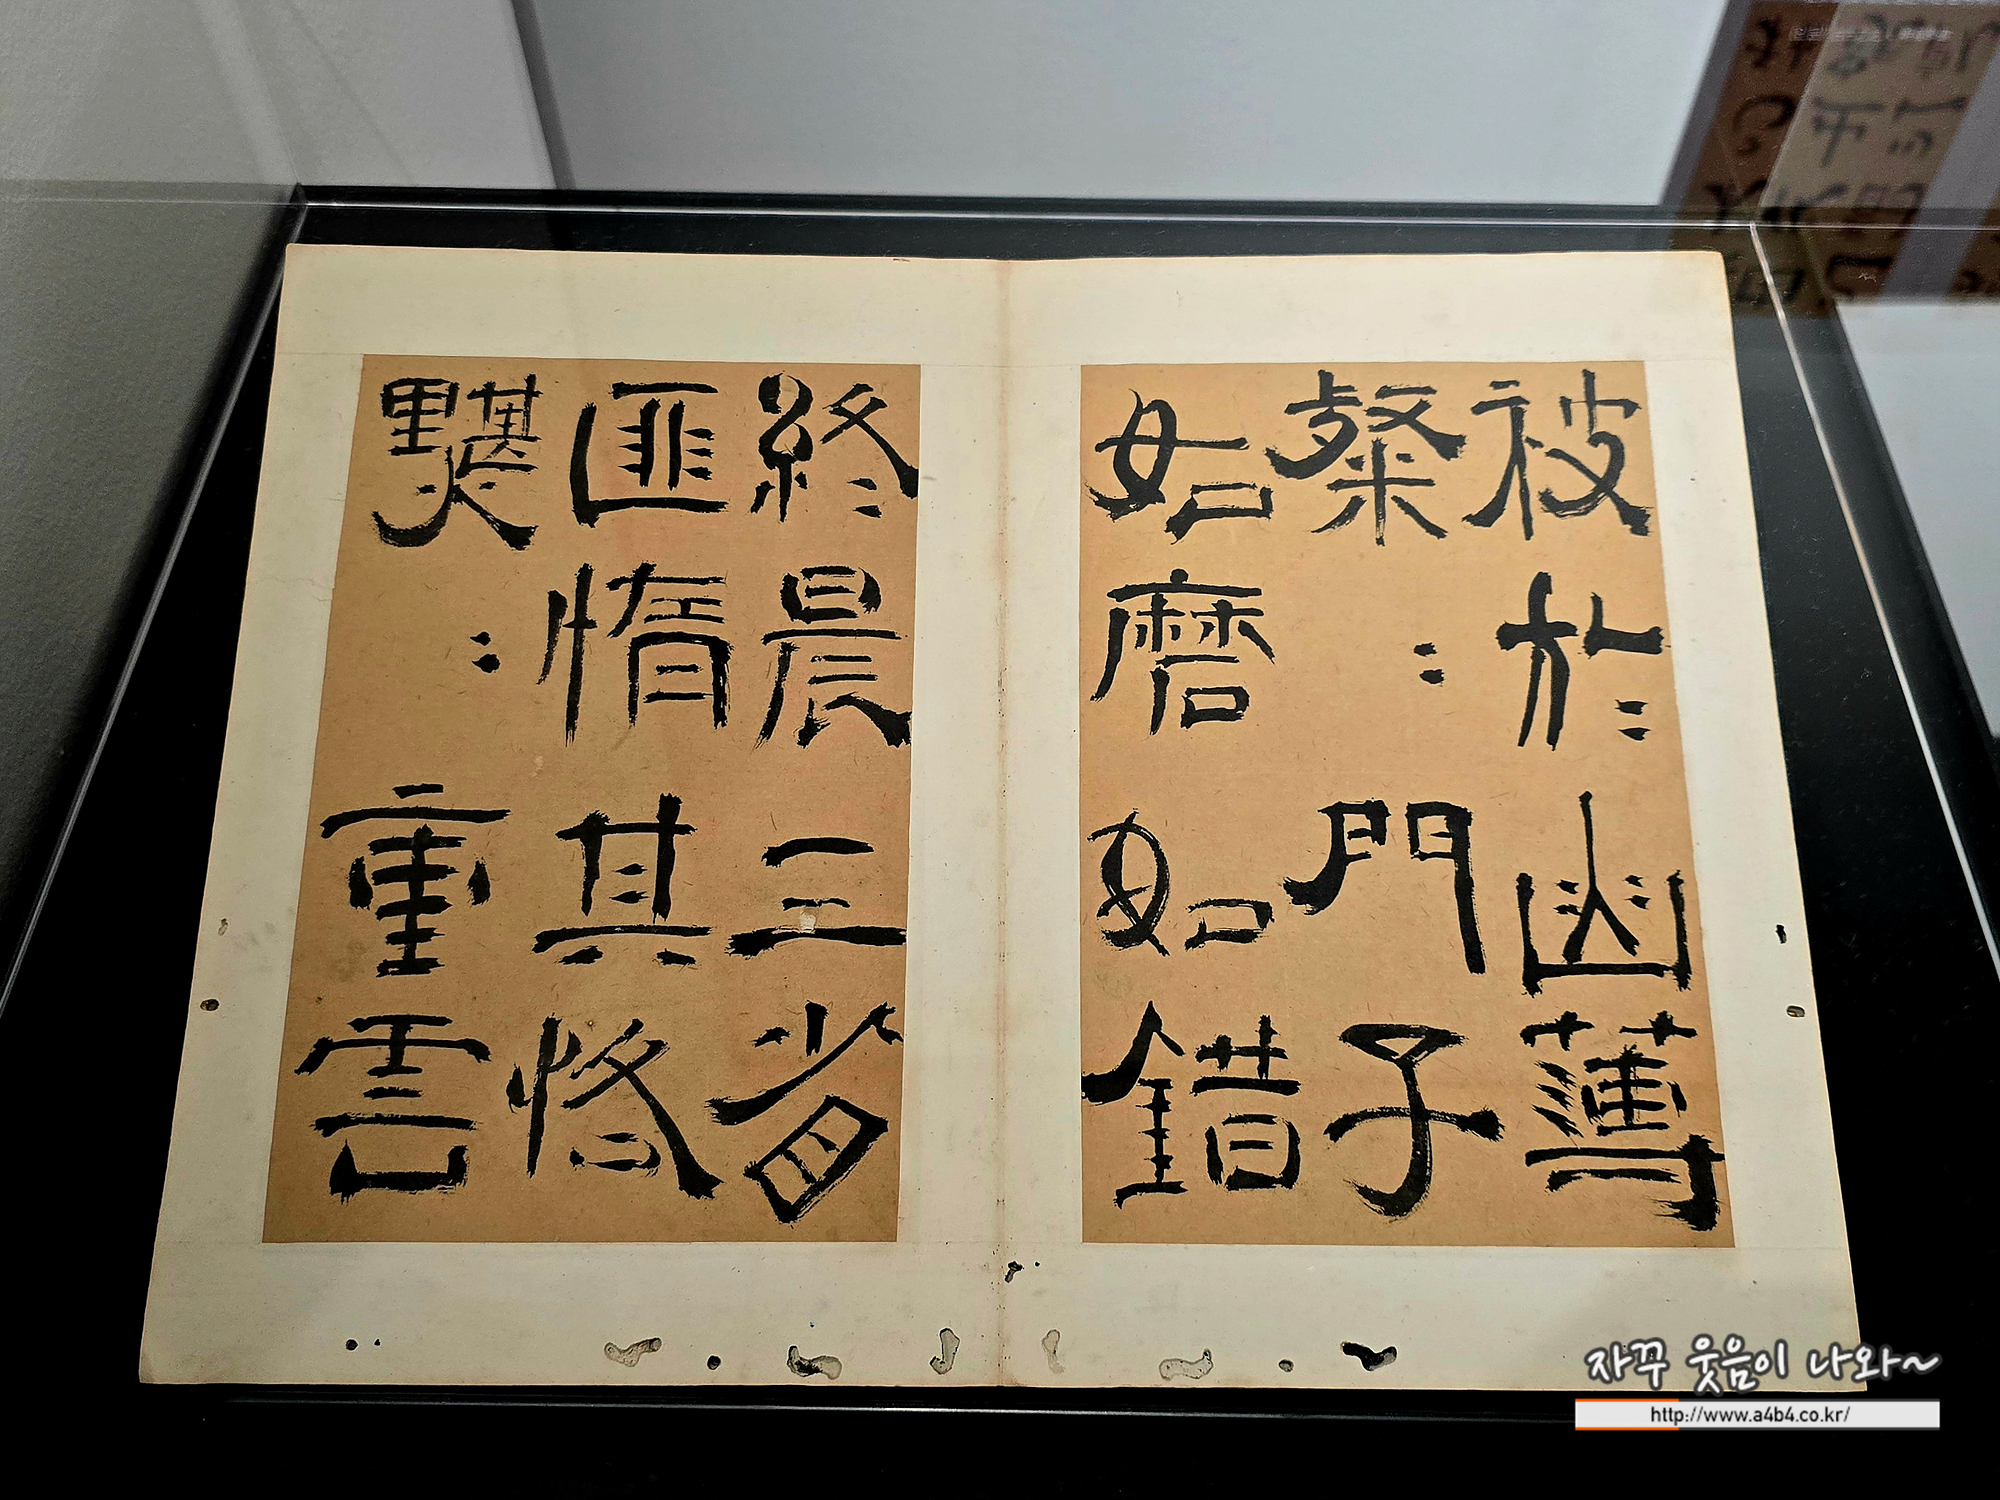 被於幽薄
粲〻門子
如磨如錯
終晨三省
匪惰其恪
黮〻重雲
자꾸 웃음이 나와~
http://www.a4b4.co.kr/